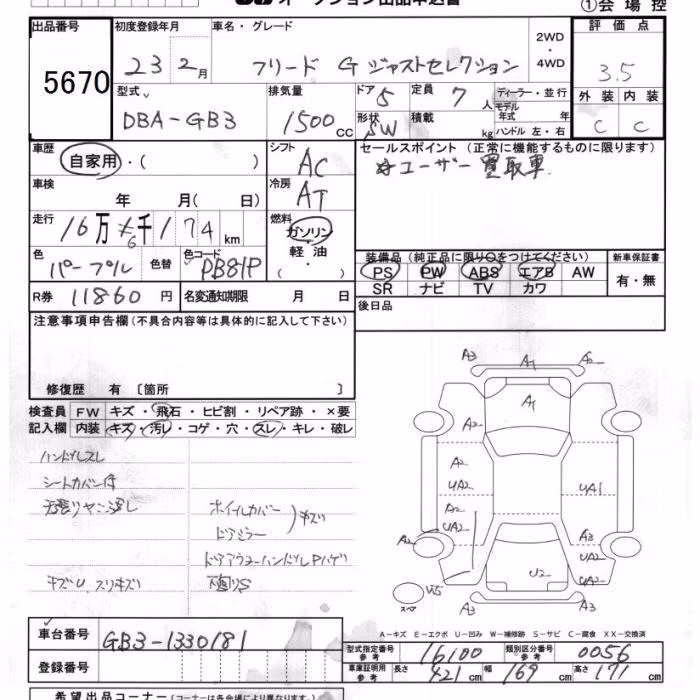 オークション出品申込書
①会場控
出品番号 5670
初度登録年月 23 2月
車名・グレード フリード G ジャストセレクション
2WD・4WD
評価点 3.5
外装 内装
C C
型式 DBA-GB3
排気量 1500cc
ドア 5
定員 7人
ディーラー・並行
モデル年式 年
形状 SW
積載 kg
ハンドル 左・右
車歴 自家用・( )
シフト AC
セールスポイント (正常に機能するものに限ります)
ユーザー買取車
車検 年 月( 日)
冷房 AT
走行 16万 6千 174km
燃料 ガソリン・軽油・( )
色 パープル
色替
色コード PB81P
装備品 (純正品に限り○をつけてください)
新車保証書
PS PW ABS エアB AW
有・無
SR ナビ TV カワ
R券 11860円
名変通知期限 月 日
後日品
注意事項申告欄(不具合内容等は具体的に記入して下さい)
修復歴 有 〔箇所 〕
検査員記入欄
FW キズ・飛石・ヒビ割・リペア跡・×要
内装 キズ・汚レ・コゲ・穴・スレ・キレ・破レ
ハンドルスレ
シートカバー付
ホイルカバー
ドアミラー
キズ
キズU、スリキズ
下廻りS
A3 A1 A2
A1
A2
A2
UA2
UA1
A2
UA2
A2
A3
UA2
U2
UA2
A3 A3
スペア
A-キズ E-エクボ U-凹み W-補修跡 S-サビ C-腐食 XX-交換済
車台番号 GB3-1330181
登録番号
型式指定番号参考 16100
類別区分番号参考 0056
車庫証明用参考 長さ 421cm 幅 169cm 高さ 171cm
希望出品コーナー(コーナーは各会場により異なります。)